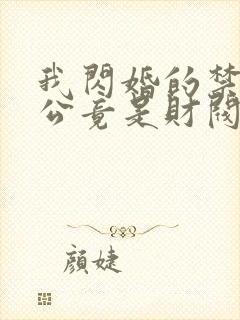 我閃婚的禁
公竟是財閥
顏婕